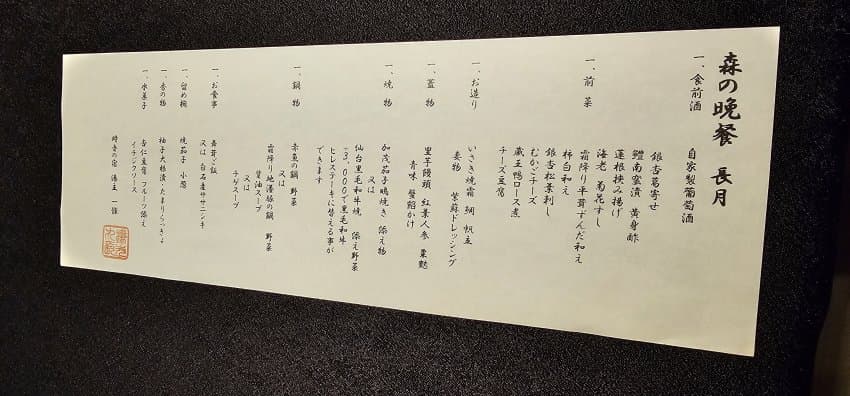 森の晩餐 長月
一、食前酒
自家製葡萄酒
一、前菜
銀杏葛寄せ
鱧南蛮漬 黄身酢
蓮根挟み揚げ
海老 菊花すし
霜降り平茸ずんだ和え
柿白和え
銀杏松葉刺し
むかごチーズ
蔵王鴨ロース煮
チーズ豆腐
一、お造り
いさき焼霜 鯛 帆立
妻物 紫蘇ドレッシング
一、蓋物
里芋饅頭 紅葉人参 粟麩
青味 蟹餡かけ
一、焼物
加茂茄子鴫焼き 添え物
又は
仙台黒毛和牛焼 添え野菜
+3,000で黒毛和牛
ヒレステーキに替える事が
できます
一、鍋物
赤魚の鍋 野菜
又は
霜降り地湯豚の鍋 野菜
醤油スープ
又は
チゲスープ
一、お食事
舞茸ご飯
又は 白石産ササニシキ
一、留め椀
焼茄子 小葱
一、香の物
柚子大根漬・たまりらっきょ
一、水菓子
杏仁豆腐 フルーツ添え
イチジクソース
時音の宿 湯主 一條